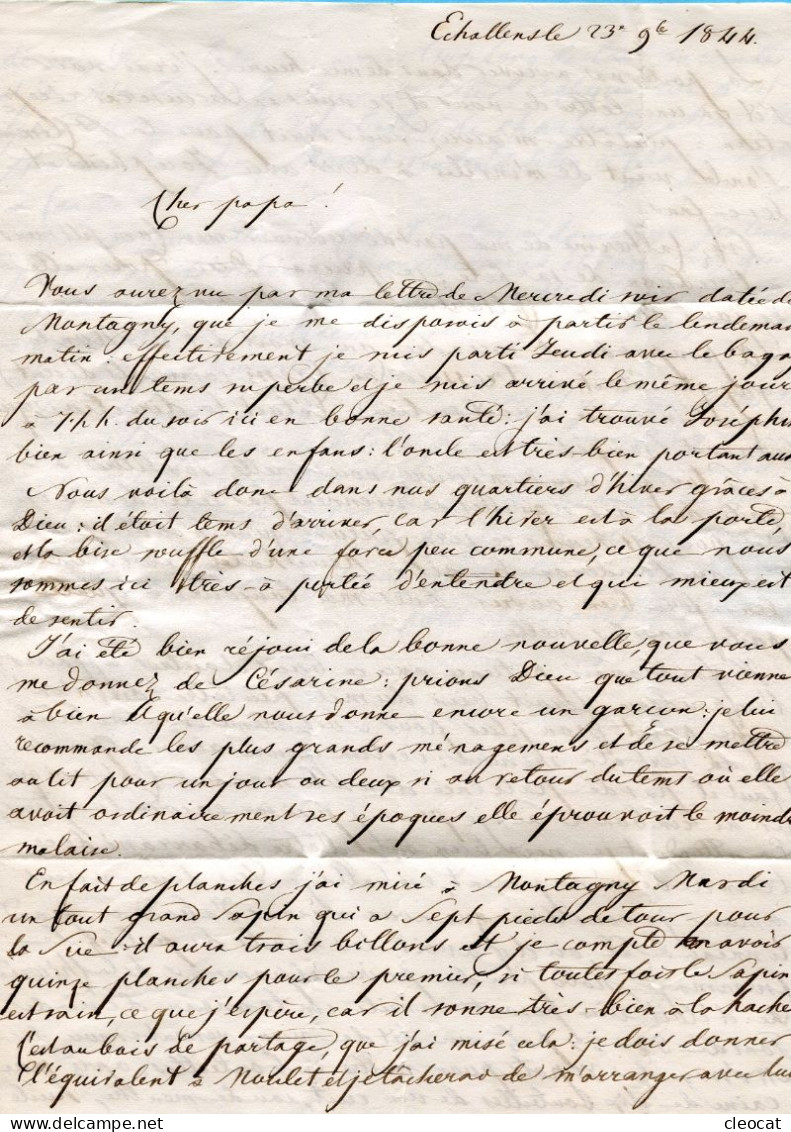 Echallens le 23e 9bre 1844.
Cher papa!
Vous aurez vu par ma lettre de Mercredi soir datée de
Montagny, que je me disposois à partir le lendemain
matin: effectivement je suis parti Jeudi avec le bagag
par un tems superbe et je suis arrivé le même jour
à 7. h h. du soir ici en bonne santé: j'ai trouvé Joséphin
bien ainsi que les enfans: l'oncle est très-bien portant aus
Nous voilà donc dans nos quartiers d'hiver grâces à
Dieu: il étoit tems d'arriver, car l'hiver est à la porte,
et la bise souffle d'une force peu commune, ce que nous
sommes ici très-à portée d'entendre et qui mieux est
de sentir.
J'ai été bien réjoui de la bonne nouvelle, que vous
me donnez de Césarine: prions Dieu que tout vienne
à bien et qu'elle nous donne encore un garçon: je lui
recommande les plus grands ménagemens et de se mettre
au lit pour un jour ou deux si au retour du tems où elle
avoit ordinairement ses époques elle éprouvoit le moindr
malaise.
En fait de planches j'ai misé à Montagny Mardi
un tout grand Sapin qui a Sept pieds de tour pour
la Scie: il aura trois billons et je compte en avoir
quinze planches pour le premier, si toutes fois le Sapin
est sain, ce que j'espère, car il sonne très-bien à la hache
C'est au bois de partage, que j'ai misé cela: je dois donner
l'équivalent à Noulet et je tacherai de m'arranger avec lui
cleocat